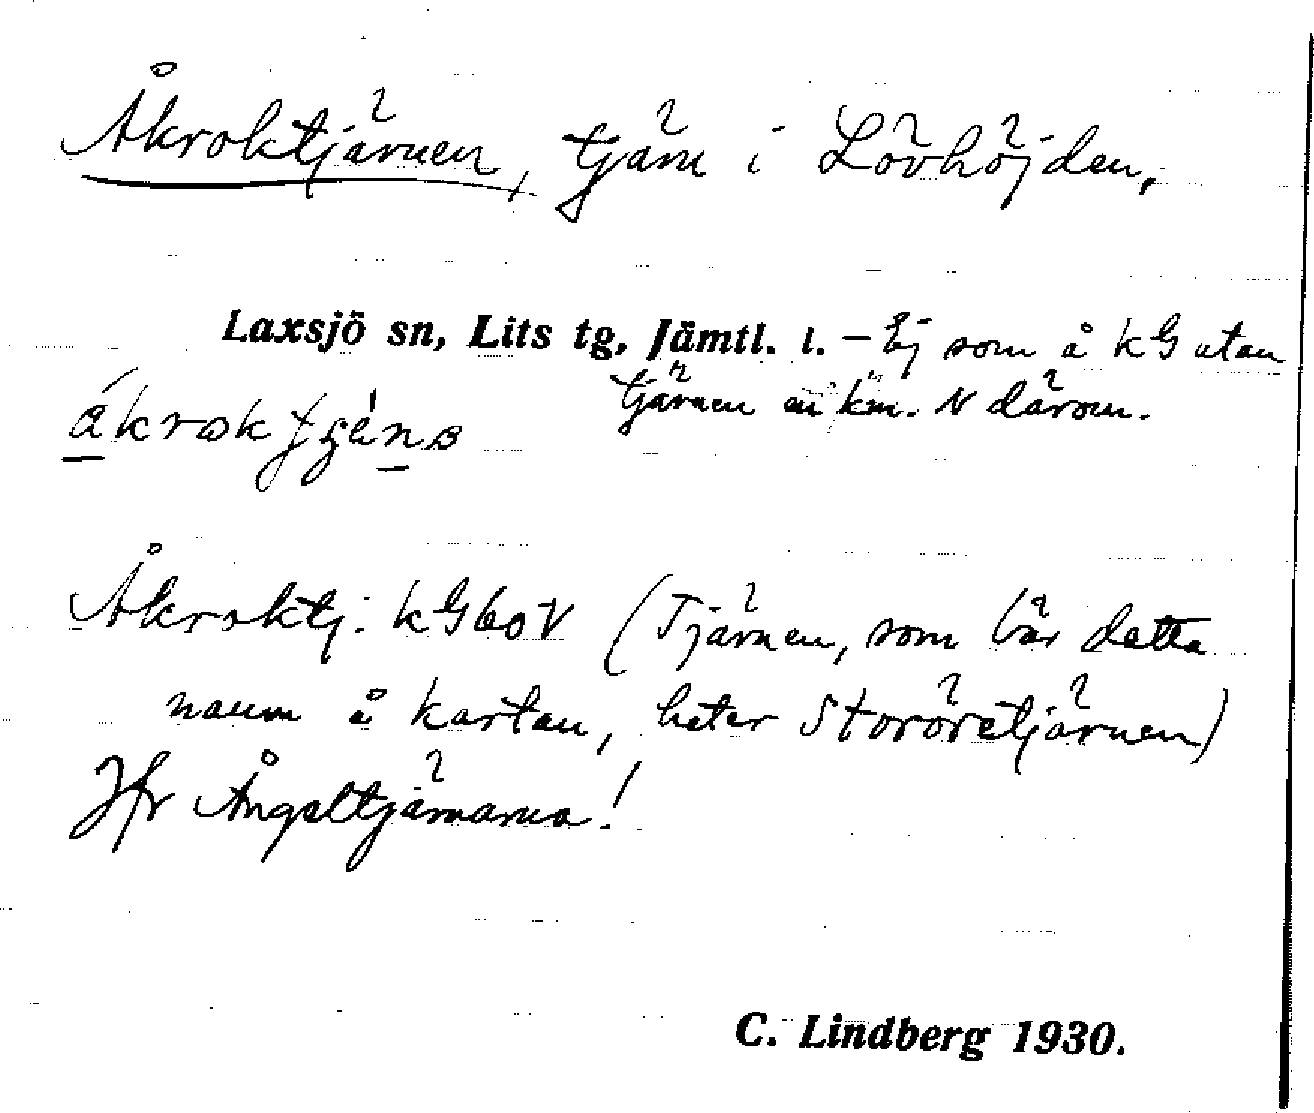 Åkroktjärnen, tjärn i Lövhöjden,
Laxsjö sn, Lits tg, Jämtl. l. – Ej som å kG utan
tjärnen en km. N därom.
Åkroktj. kG60V (Tjärnen, som bär detta
namn å kartan, heter Storöretjärnen)
Jfr Ångeltjärnarna!
C. Lindberg 1930.